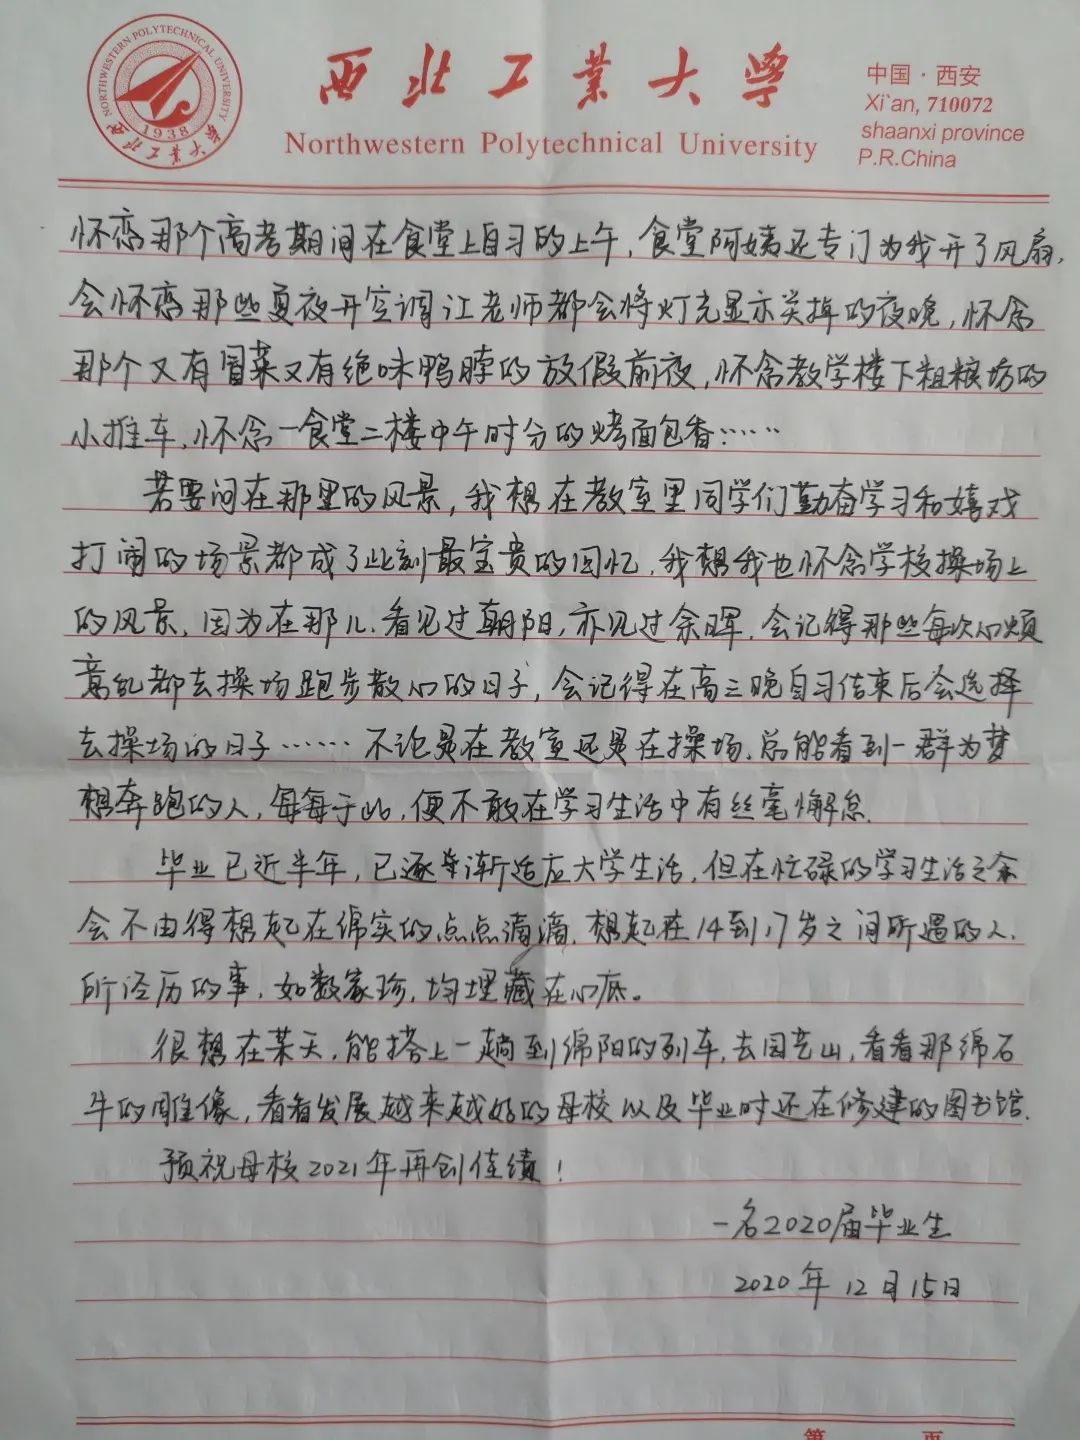 NORTHWESTERN POLYTECHNICAL UNIVERSITY
1938
西北工业大学
西北工业大学
Northwestern Polytechnical University
中国·西安
Xi`an, 710072
shaanxi province
P.R.China
怀恋那个高考期间在食堂上自习的上午，食堂阿姨还专门为我开了风扇，
会怀恋那些夏夜开空调让老师都会将灯光显示关掉的夜晚，怀念
那个又有冒菜又有绝味鸭脖的放假前夜，怀念教学楼下粗粮坊的
小推车，怀念一食堂二楼中午时分的烤面包香……
若要问在那里的风景，我想在教室里同学们勤奋学习和嬉戏
打闹的场景都成了此刻最宝贵的回忆，我想我也怀念学校操场上
的风景，因为在那儿、看见过朝阳，亦见过余晖，会记得那些每次心烦
意乱都去操场跑步散心的日子，会记得在高三晚自习结束后会选择
去操场的日子……不论是在教室还是在操场，总能看到一群为梦
想奔跑的人，每每于此，便不敢在学习生活中有丝毫懈怠.
毕业已近半年，已逐渐适应大学生活，但在忙碌的学习生活之余
会不由得想起在绵实的点点滴滴，想起在14到17岁之间所遇的人、
所泾历的事，如数家珍，均埋藏在心底。
很想在某天，能搭上一趟到绵阳的列车，去园艺山，看看那绵石
牛的雕像，看看发展越来越好的母校以及毕业时还在修建的图书馆.
预祝母校2021年再创佳绩！
一名2020届毕业生
2020年12月15日
第 页